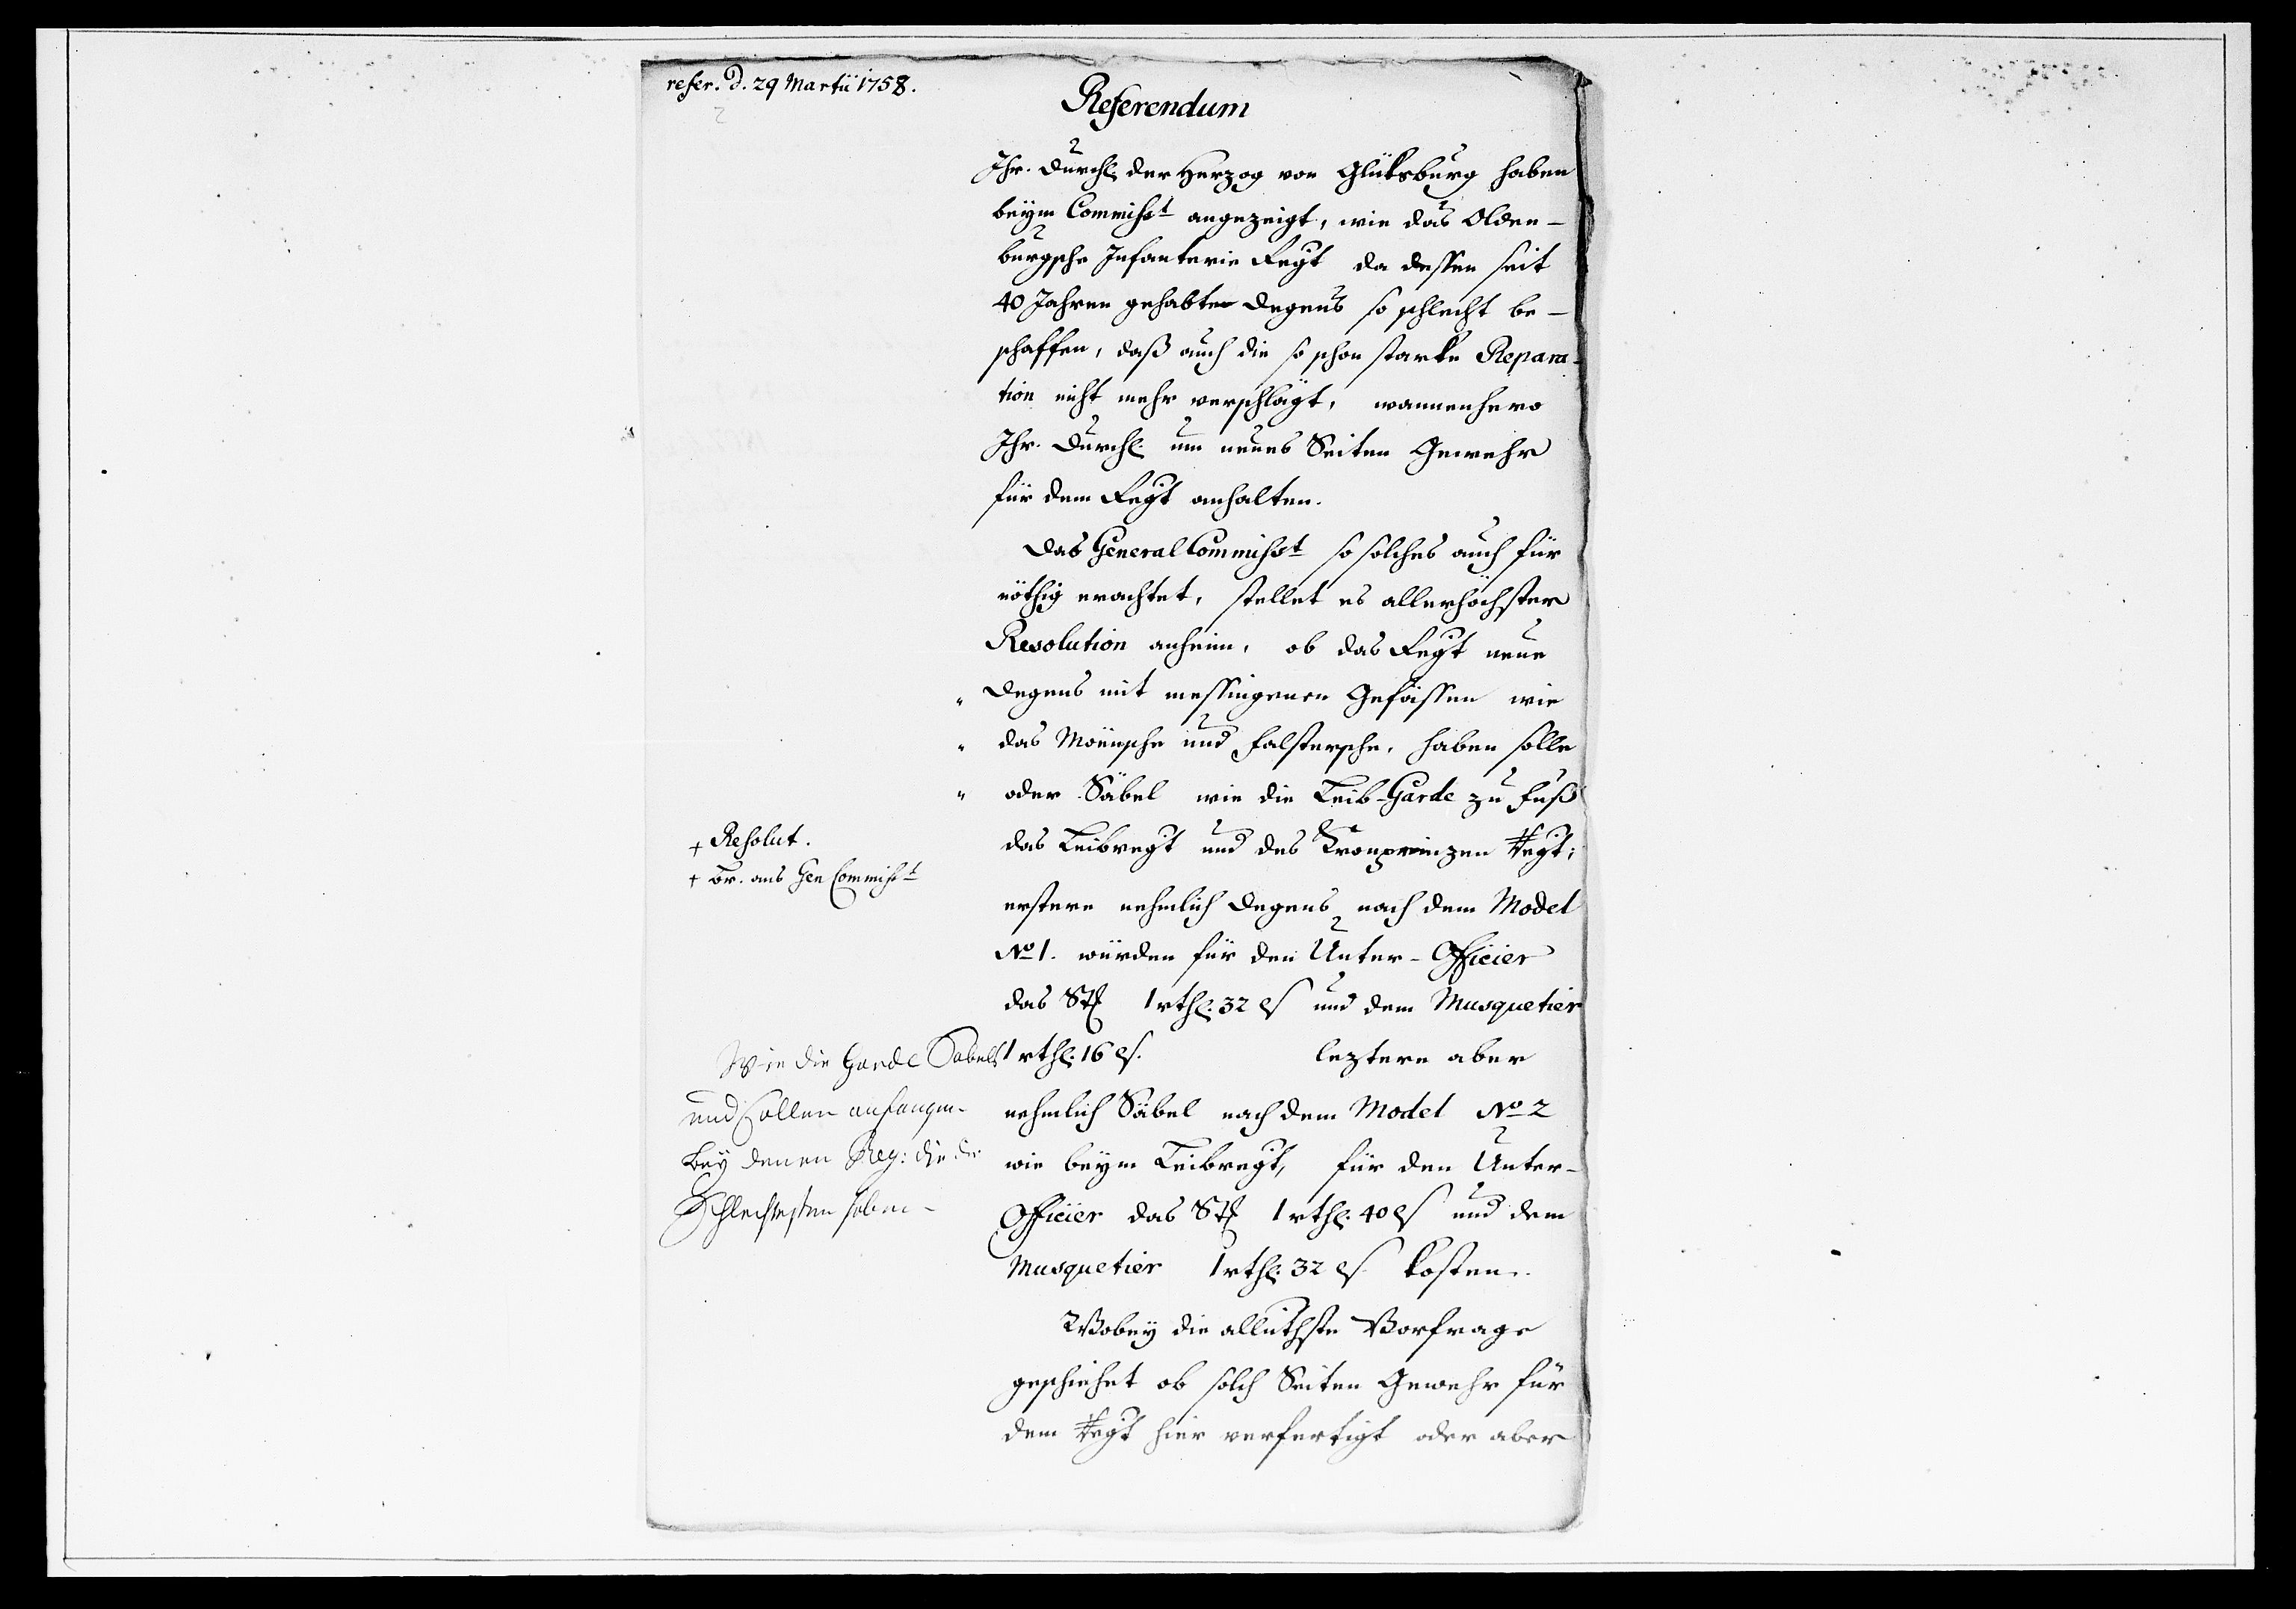 refer. d. 29 Martii 1758.
Referendum
Ihr. Durchl. der Herzog von Glüksburg haben
beym Commisst angezeigt, wie das Olden-
burgsche Infanterie Regt da dessen seit
40 Jahren gehabte Degens so schlecht be-
schaffen, daß auch die so schon starke Repara-
tion nicht mehr verschlägt, wannenhero
Ihr. Durchl. um neues Seiten Gewehr
für dem Regt anhalten.
Das General Commisst so solches auch für
nöthig erachtet, stellet es allerhöchster
Resolution anheim, ob das Regt neue
" Degens mit messingenen Gefässen wie
" das Möensche und Falstersche, haben solle
" oder Säbel wie die Leib-Garde zu Fuß
das Leibregt und des Cronprinzen Regt;
erstere nehmlich Degens nach dem Model
No 1. würden für den Unter-Officier
das Stl 1 rthl. 32 ß und dem Musquetier
1 rthl. 16 ß. leztere aber
nehmlich Säbel nach dem Model No 2
wie beym Leibregt, für den Unter-
Officier das Stl 1 rthl. 40 ß und dem
Musquetier 1 rthl. 32 ß kosten.
Wobey die allunthste Vorfrage
geschiehet ob solch Seiten Gewehr für
dem Regt hier verfertigt oder aber
+ Resolut.
+ Br. ans Gen Commisst
Wie die Garde Sabels
und sollen anfangen
bey denen Reg: die die
Schlechtesten haben